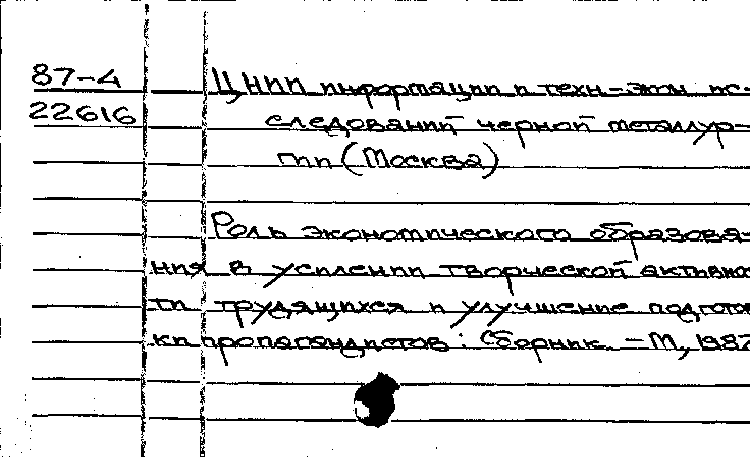 87-4 ЦНИИ информации и техн-экон ис-
22616 следований черной металлур-
гии (Москва)
Роль экономического образова-
ния в усилении творческой активнос
ти трудящихся и улучшение подготов
ки пропагандистов: Сборник. - М, 1987